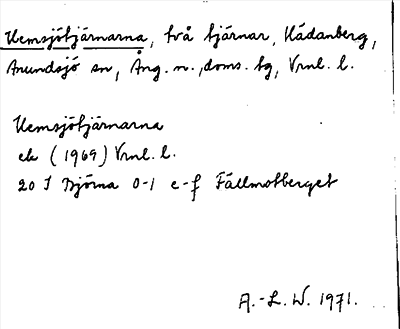 Kemsjötjärnarna, två tjärnar, Kådanberg,
Anundsjö sn, Ång. n., doms. bg, Vrnl. l.
Kemsjötjärnarna
ek (1969) Vrnl. l.
20 I Björna 0-1 e-f Fällmotberget
A.-L. W. 1971.